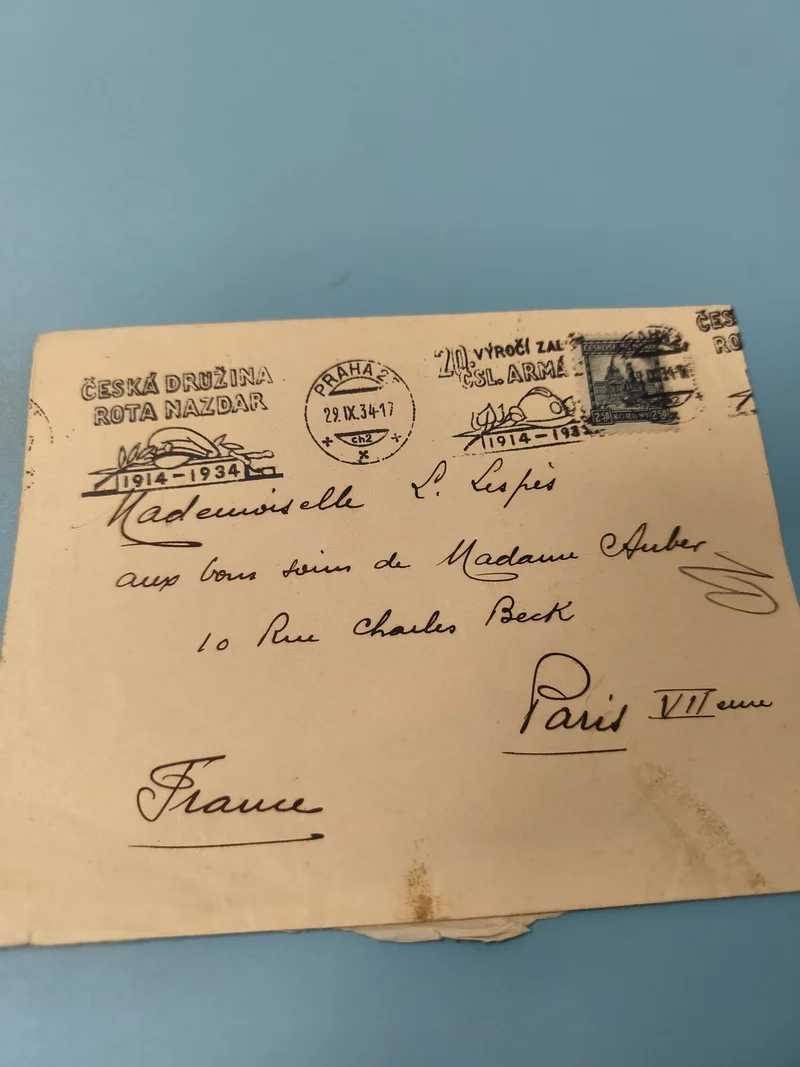 ČESKÁ DRUŽINA
ROTA NAZDAR
1914-1934
PRAHA
29.IX.34-17
ch2
20. VÝROČÍ ZAL
ČSL. ARMÁ
1914-193
2.50 KORUNY 2.50
ČES
RO
Mademoiselle L. Lespès
aux bons soins de Madame Auber
10 Rue Charles Beck
Paris VIIeme
France